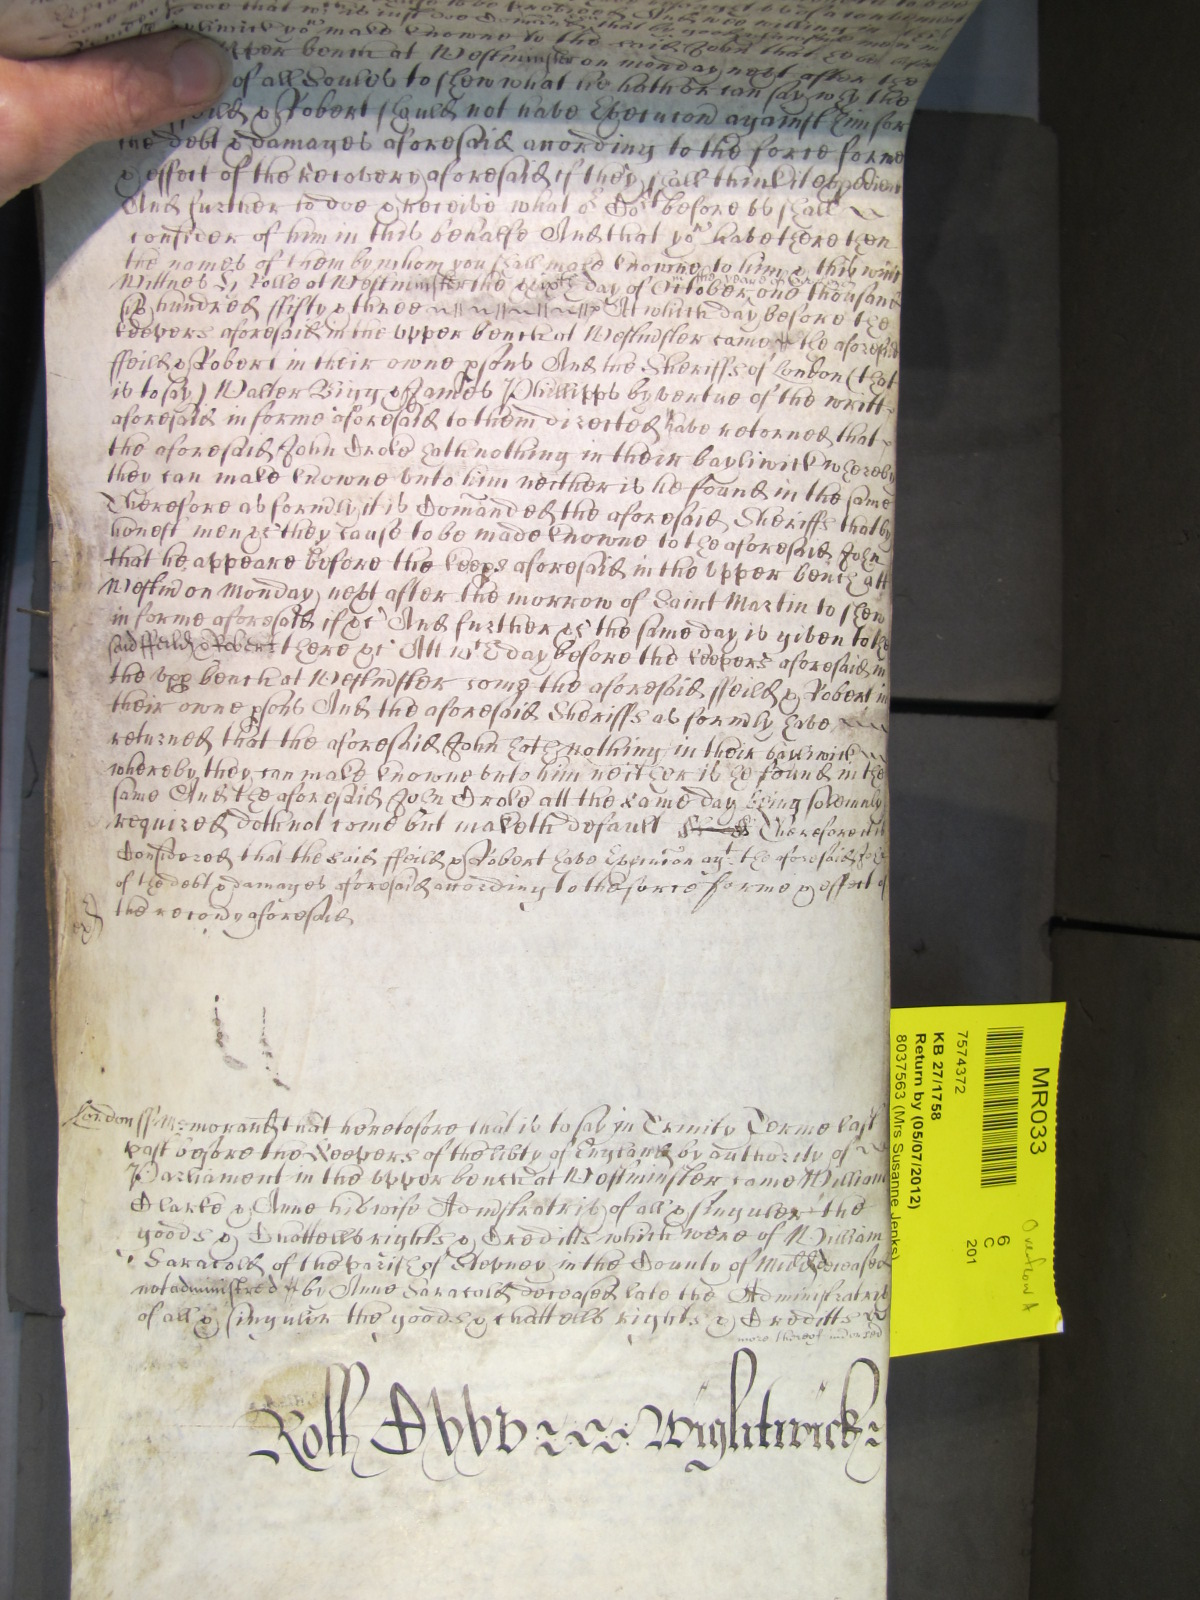 upper bench at Westminster on monday next after the
of all Soules to shew what he hath or can say why the
ffeild & Robert should not have Execucon against him for
the debt & damages aforesaid according to the force forme
& effect of the Recovery aforesaid if they shall thinke it expedient
And further to doe & receive what or Cort before us shall
consider of him in this behalfe And that yow have there then
the names of them by whom you shall make knowne to him & this writt
Wittnes H: Rolle at Westminster the day of October in the yeare of our Lord one thousand
six hundred ffifty & three At which day before the
keepers aforesaid in the upper bench at Westmister came the aforesaid
ffeild & Robert in their owne psons And the Sheriffs of London (that
is to say) Walter Bigg & James Phillipps by vertue of the writt
aforesaid in forme aforesaid to them directed have retorned that
the aforesaid John Crole hath nothing in their bayliwick whereby
they can make knowne unto him neither is he found in the same
Therefore as formly it is Comanded the aforesaid Sheriffs that by
honest men &c they cause to be made knowne to the aforesaid John
that he appeare before the keeps aforesaid in the upper bench att
Westm on Monday next after the morrow of Saint Martin to shew
in forme aforesaid if &c And further &c the same day is given to the
said ffeild & Robert there &c Att wch day before the keepers aforesaid in
the upp bench at Westmister come the aforesaid ffeild & Robert in
their owne psons And the aforesaid Sheriffs as formly have
returned that the aforesaid John hath nothing in their bayliwick
whereby they can make knowne unto him neither is he found in the
same And the aforesaid John Crole att the same day being solemnly
required doth not come but maketh default Therefore it is
Considered that the said ffeild & Robert have Execucon agt the aforesaid John
of the debt & damages aforesaid according to the force forme & effect of
the recovy aforesaid
London ss Memorand that heretofore that is to say in Trinity Terme last
past before the Keepers of the libty of England by authority of
Parliament in the upper bench at Westminster came William
Clarke & Anne his wife Administratrix of all & singuler the
goods & Chattells rights & Creditts which were of William
Saracold of the parish of Stepney in the County of Midd deceased
not administred by Anne Saracold deceased late the Administratrix
of all & singuler the goods & chattells rights & Creditts
more thereof indorsed
Roll Wightwick
MR033
7574372
KB 27/1758
Return by (05/07/2012)
8037563 (Mrs Susanne Jenks)
6
C
201
Overflow A